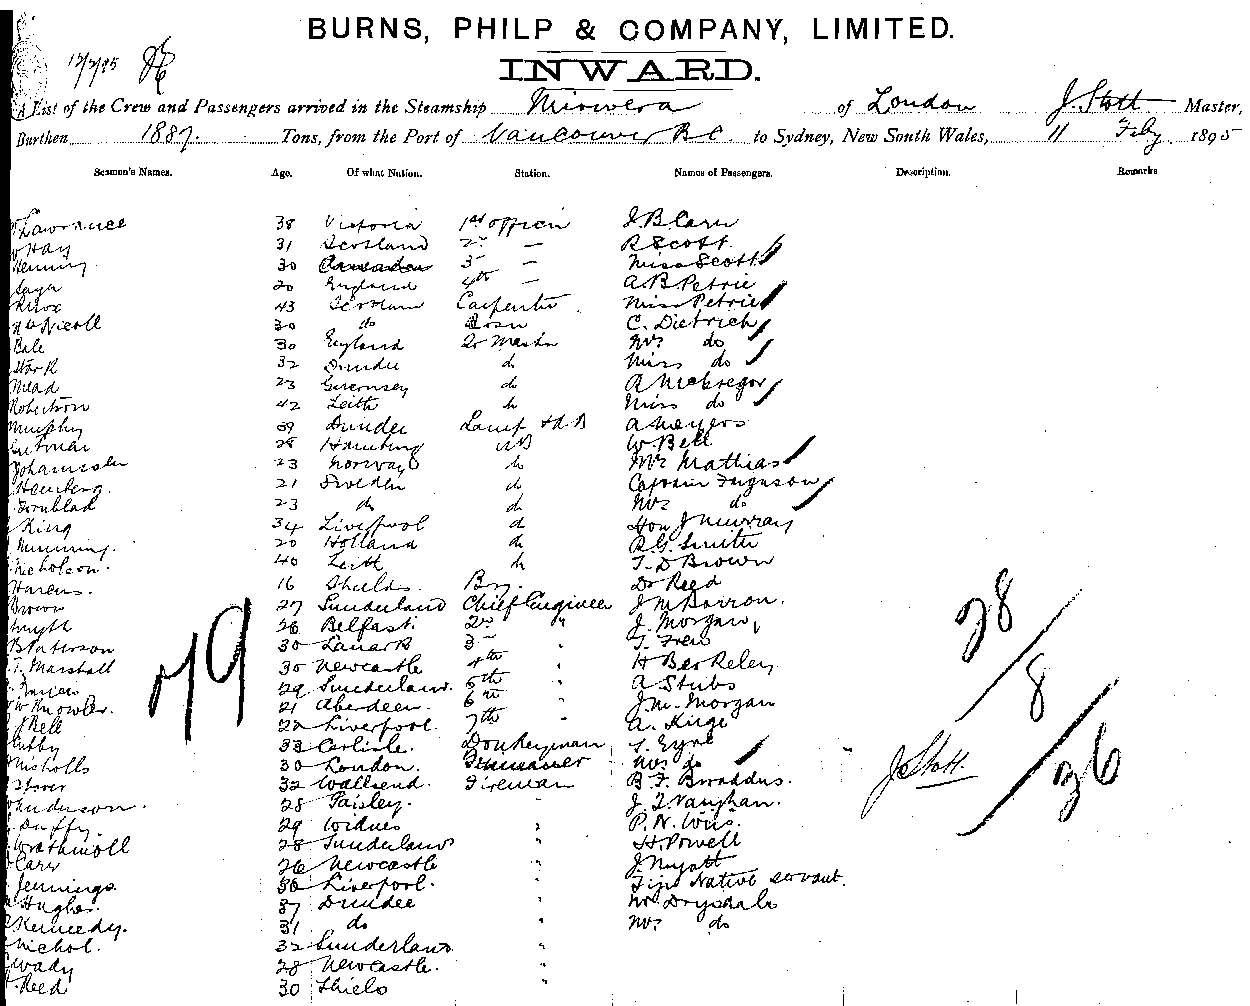 BURNS, PHILP & COMPANY, LIMITED.
INWARD.
12/2/95
A List of the Crew and Passengers arrived in the Steamship Miowera of London J. Stott Master,
Burthen 1887. Tons, from the Port of Vancouver B.C. to Sydney, New South Wales, 11 Feby 1895
Seamen's Names. Age. Of what Nation. Station. Names of Passengers. Description. Remarks
Lawrance 38 Victoria 1st officer J. B. Carr
Hay 31 Scotland 2nd — R Scott
30 3rd — Miss Scott
20 England 4th — A B Petrie
43 Scotland Carpenter Miss Petrie
McNicoll 30 do Bosn C. Dietrich
Bale 30 England Qr Master Mrs do
Stark 32 Dundee do Miss do
Mead 23 Guernsey do A McGregor
Robertson 42 Leith do Miss do
Murphy 39 Dundee Lamp A Meyers
28 Hamburg AB W. Bell
23 Norway do Mr Mathias
21 Sweden do Captain Ferguson
23 do do Mrs do
King 34 Liverpool do Hon J Murray
20 Holland do R. G. Smith
Nicholson. 40 Leith do T. D Brown
16 Shields Boy. Dr Reed
Brown 27 Sunderland Chief Engineer J M Barron.
Smyth 26 Belfast. 2nd " J. Morgan,
B Paterson 30 Lanark 3rd " T. Frew
T. Marshall 30 Newcastle 4th " H Berkeley
29 Sunderland. 5th " A Stubs
W Knowler. 21 Aberdeen. 6th J. M. Morgan
Bell 22 Liverpool. 7th " A. Kirge
33 Carlisle. Donkeyman T. Eyre
Nicholls 30 London. Mrs do
32 Wallsend. Fireman B. F. Braddus.
28 Paisley. J. T. Vaughan.
Duffy. 29 Widnes " P. N.
28 Sunderland " H. Powell
Carr 26 Newcastle " J. Myatt
Jennings. 36 Liverpool. " Native servant.
Hughes. 37 Dundee " Mr Drysdale
Kennedy. 31 do " Mrs do
Nichol. 32 Sunderland "
28 Newcastle. "
Reed 30 Shields
79
28
8
36
J. Stott.